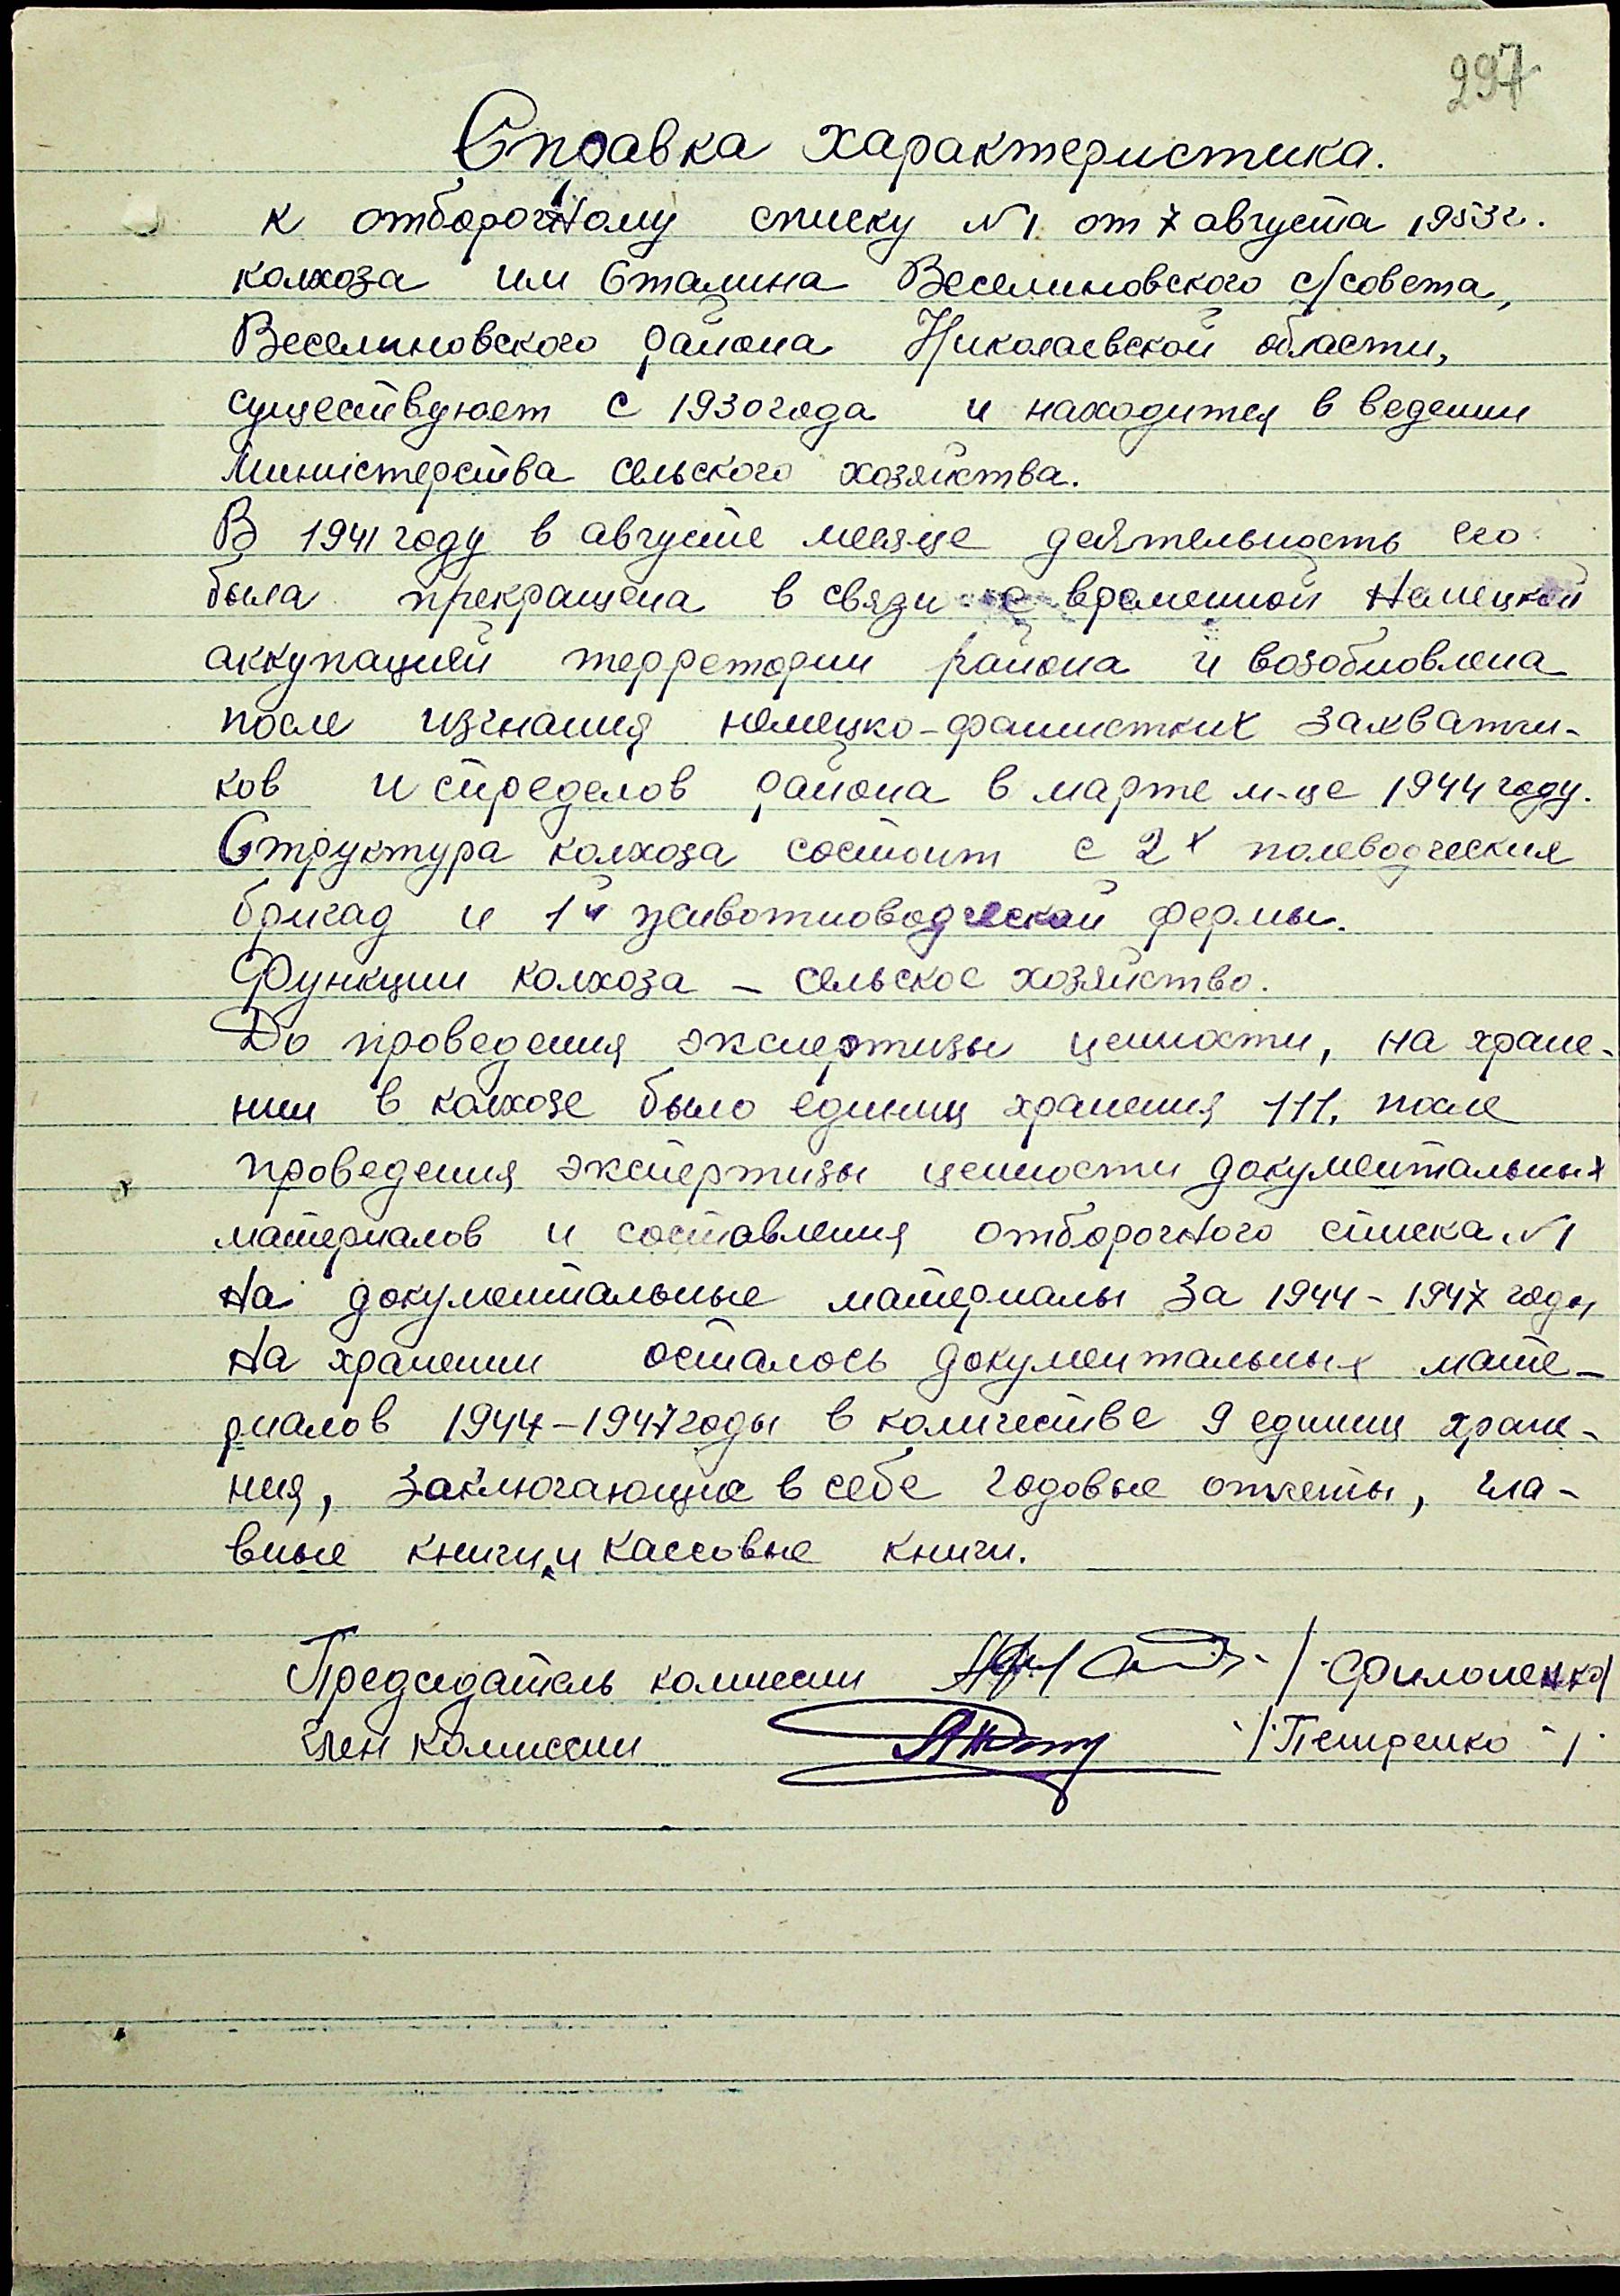 297
Справка характеристика.
к отборочному списку №1 от 7 августа 1953г.
колхоза им Сталина Веселиновского с/совета,
Веселиновского района Николаевской области,
существуюет с 1930 года и находится в ведении
Министерства сельского хозяйства.
В 1941 году в августе месяце деятельность его
была прекращена в связи с временной Немецкой
аккупацией терретории района и возобновлена
после изгнания немецко-фашистких захватчи-
ков и спределов района в марте м-це 1944 году.
Структура колхоза состоит с 2х полеводческих
бригад и 1й животноводческой фермы.
Функции колхоза – сельское хозяйство.
До проведения экспертизы ценности, на хране-
нии в колхозе было единиц хранения 111, после
проведения экспертизы ценности документальных
материалов и составления отборочного списка №1
На документальные материалы за 1944-1947 годы
На хранении осталось документальных мате-
риалов 1944-1947 годы в количестве 9 единиц хране-
ния, заключающие в себе годовые отчеты, гла-
вные книги и кассовые книги.
Председатель комиссии /Филоненко/
Член комиссии /Петренко/.